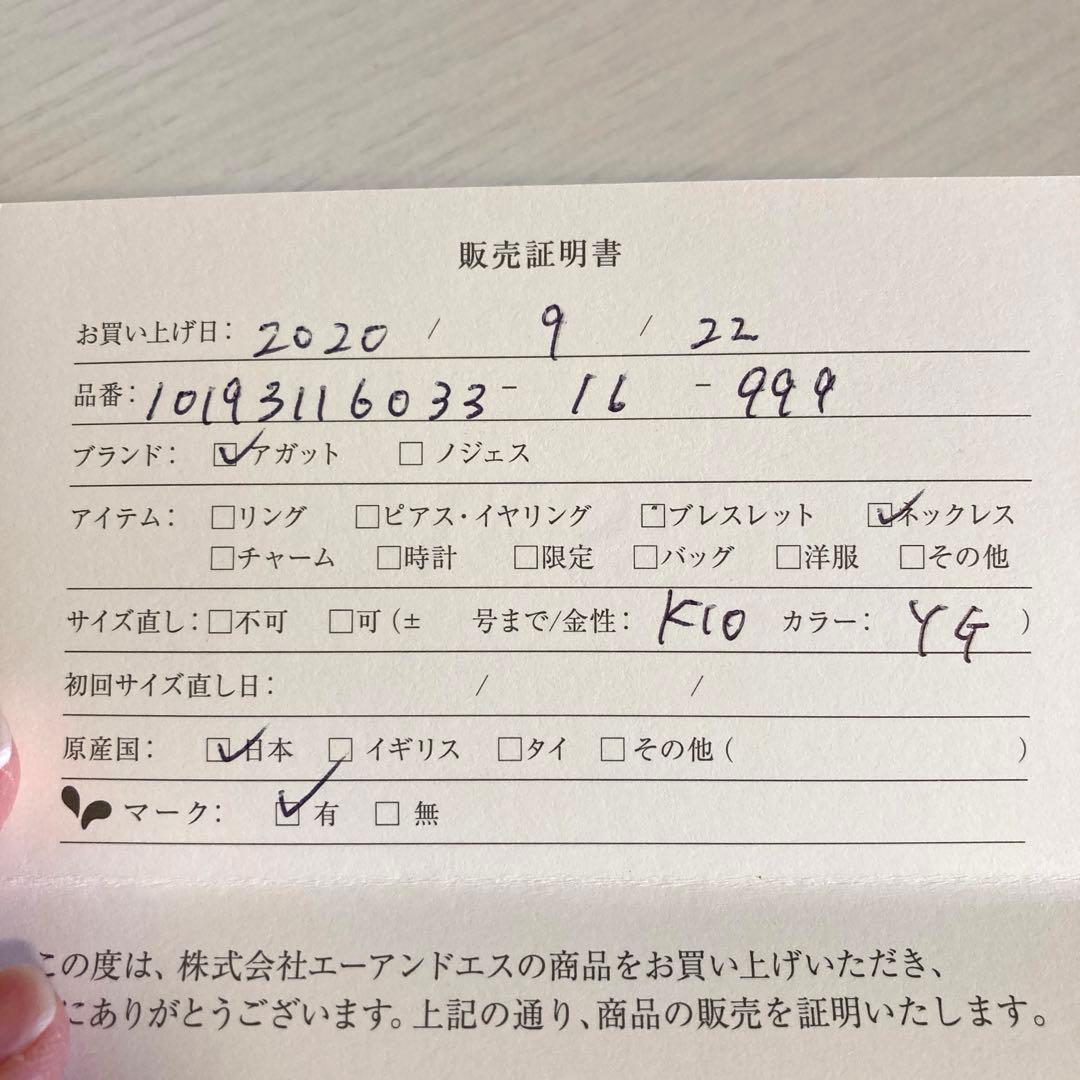 販売証明書
お買い上げ日： 2020 / 9 / 22
品番： 10193116033 - 16 - 999
ブランド： ☑アガット □ ノジェス
アイテム： □リング □ピアス・イヤリング □ブレスレット ☑ネックレス
□チャーム □時計 □限定 □バッグ □洋服 □その他
サイズ直し：□不可 □可（± 号まで/金性： K10 カラー： YG ）
初回サイズ直し日： / /
原産国： ☑日本 □ イギリス □タイ □ その他（ ）
マーク： ☑ 有 □ 無
この度は、株式会社エーアンドエスの商品をお買い上げいただき、
にありがとうございます。上記の通り、商品の販売を証明いたします。